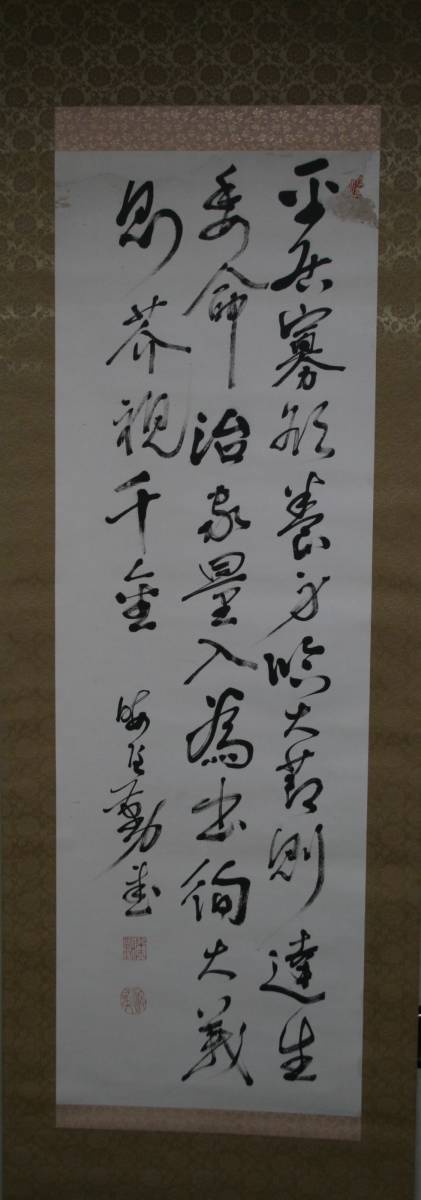 平居寡欲養身臨大節則達生
委命治家量入為出徇大義
則芥視千金